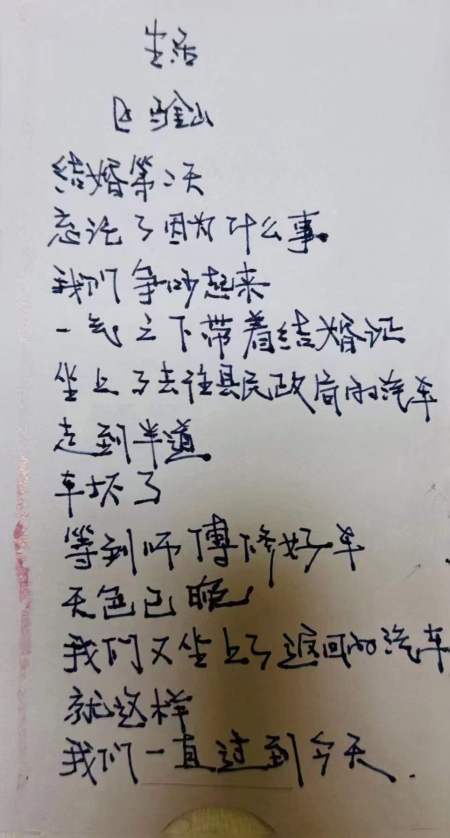 生活
马金山
结婚第二天
忘记了因为什么事
我们争吵起来
一气之下带着结婚证
坐上了去往县民政局的汽车
走到半道
车坏了
等到师傅修好车
天色已晚
我们又坐上了返回的汽车
就这样
我们一直过到今天.